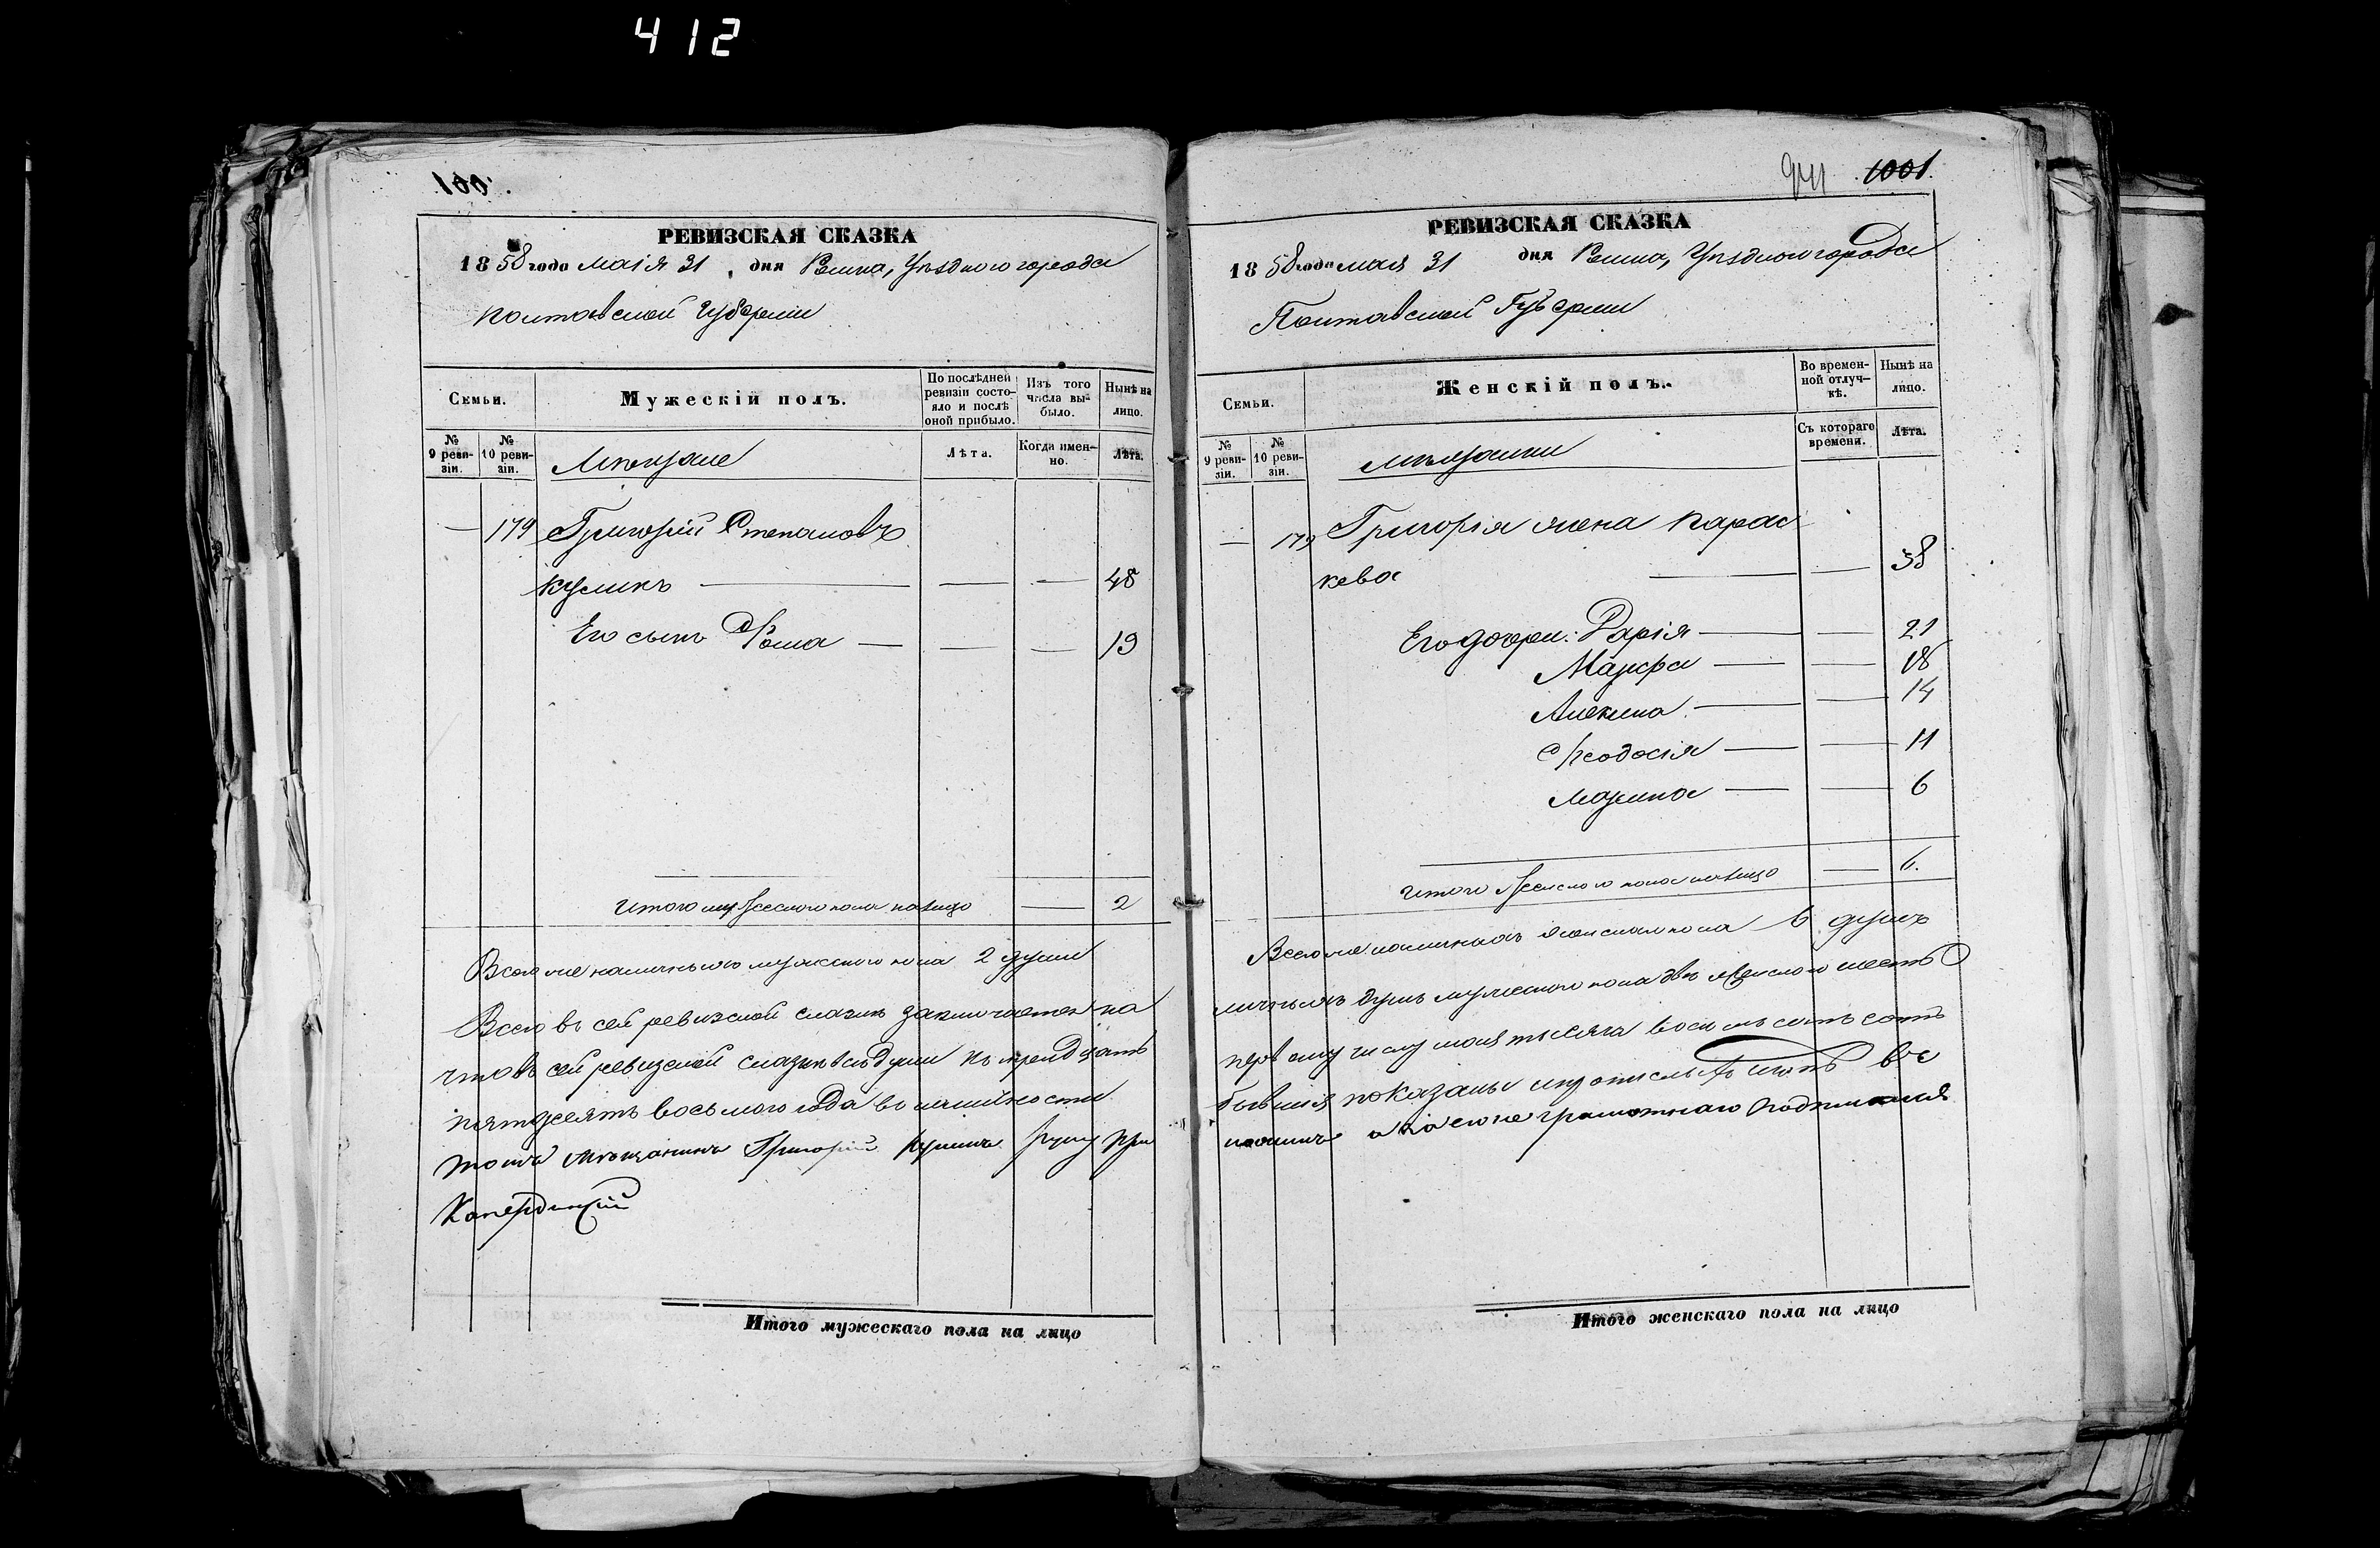 412
100.
РЕВИЗСКАЯ СКАЗКА
1858 года маія 31 дня Ромна, Уѣзднаго города
Полтавской Губерніи
Семьи.
Мужескій полъ.
По послѣдней ревизіи состояло и послѣ оной прибыло.
Изъ того числа выбыло.
Нынѣ на лицо.
№ 9 ревизіи.
№ 10 ревизіи.
Мѣщане
Лѣта.
Когда именно.
Лѣта.
— 179 Григорій Степановъ
Куликъ — — — 48
Его сынъ Фома — — — 19
Итого мужескаго пола налицо — 2
Всего же наличныхъ мужескаго пола 2 души
Всего въ сей ревизской сказкѣ заключается на
что въ сей ревизской сказкѣ всѣ души къ тридцать
пятдесятъ восьмого года въ наличности
томъ мѣщанинъ Григорій Куликъ руку при
Итого мужескаго пола на лицо
941 1001
РЕВИЗСКАЯ СКАЗКА
1858 года мая 31 дня Ромна, Уѣзднаго города
Полтавской Губерніи
Семьи.
Женскій полъ.
Во временной отлучкѣ.
Нынѣ на лицо.
№ 9 ревизіи.
№ 10 ревизіи.
Мѣщанки
Съ котораго времени.
Лѣта.
— 179 Григорія жена Парас
кева — — 38
Его дочери: Дарія — — 21
Марфа — — 18
Акилина — — 14
Феодосія — — 11
Марина — — 6
Итого женскаго пола налицо — 6.
Всего же наличныхъ женскаго пола 6 душъ
личныхъ душъ мужескаго пола двѣ женскаго шесть
первому числу мая тысяча восемь сотъ
бывшія показаны и прописныхъ нѣтъ въ
а за его не грамотнаго подписался
Итого женскаго пола на лицо